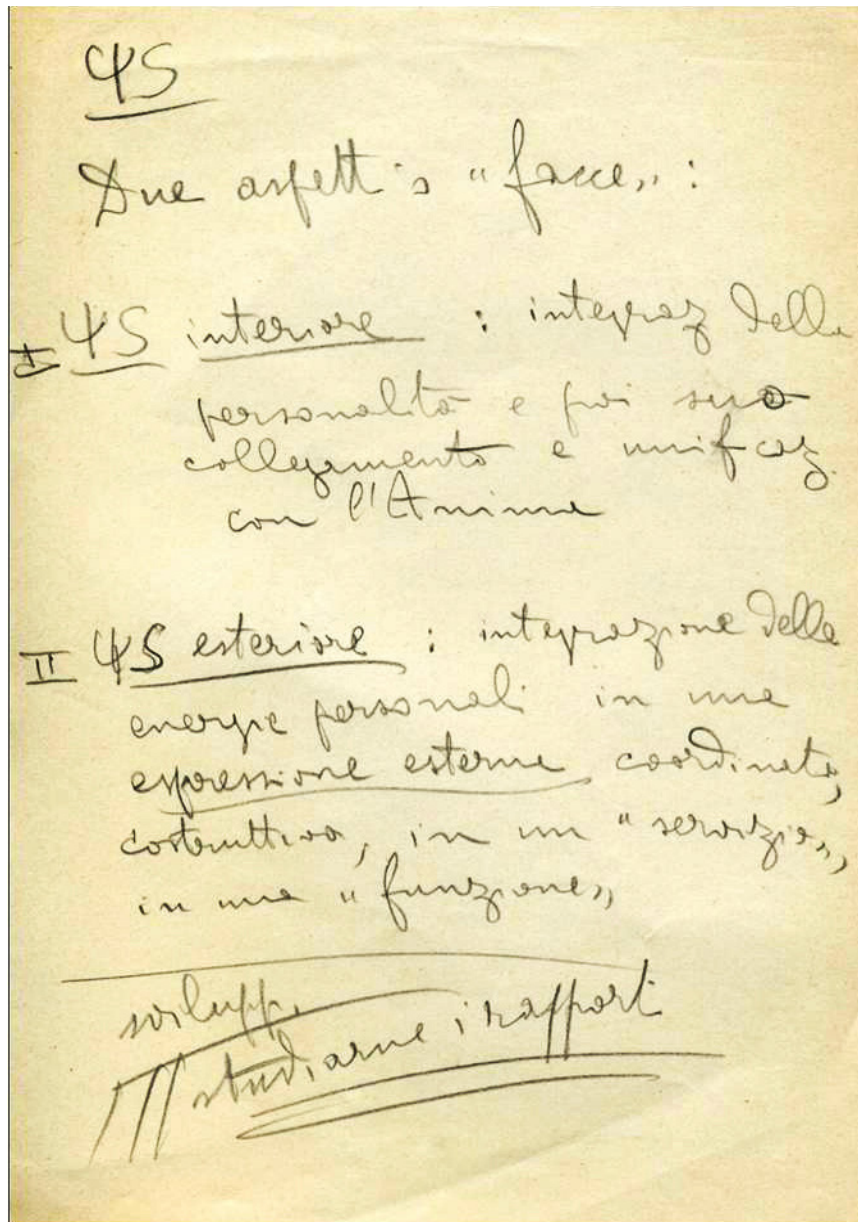 ΨS
Due aspetti o "facce":
I ΨS interiore : integraz della
personalità e poi suo
collegamento e unificaz.
con l'Anima
II ΨS esteriore : integrazione delle
energie personali in una
espressione esterna coordinata,
costruttiva, in un "servizio",
in una "funzione"
svilupp.
studiarne i rapporti